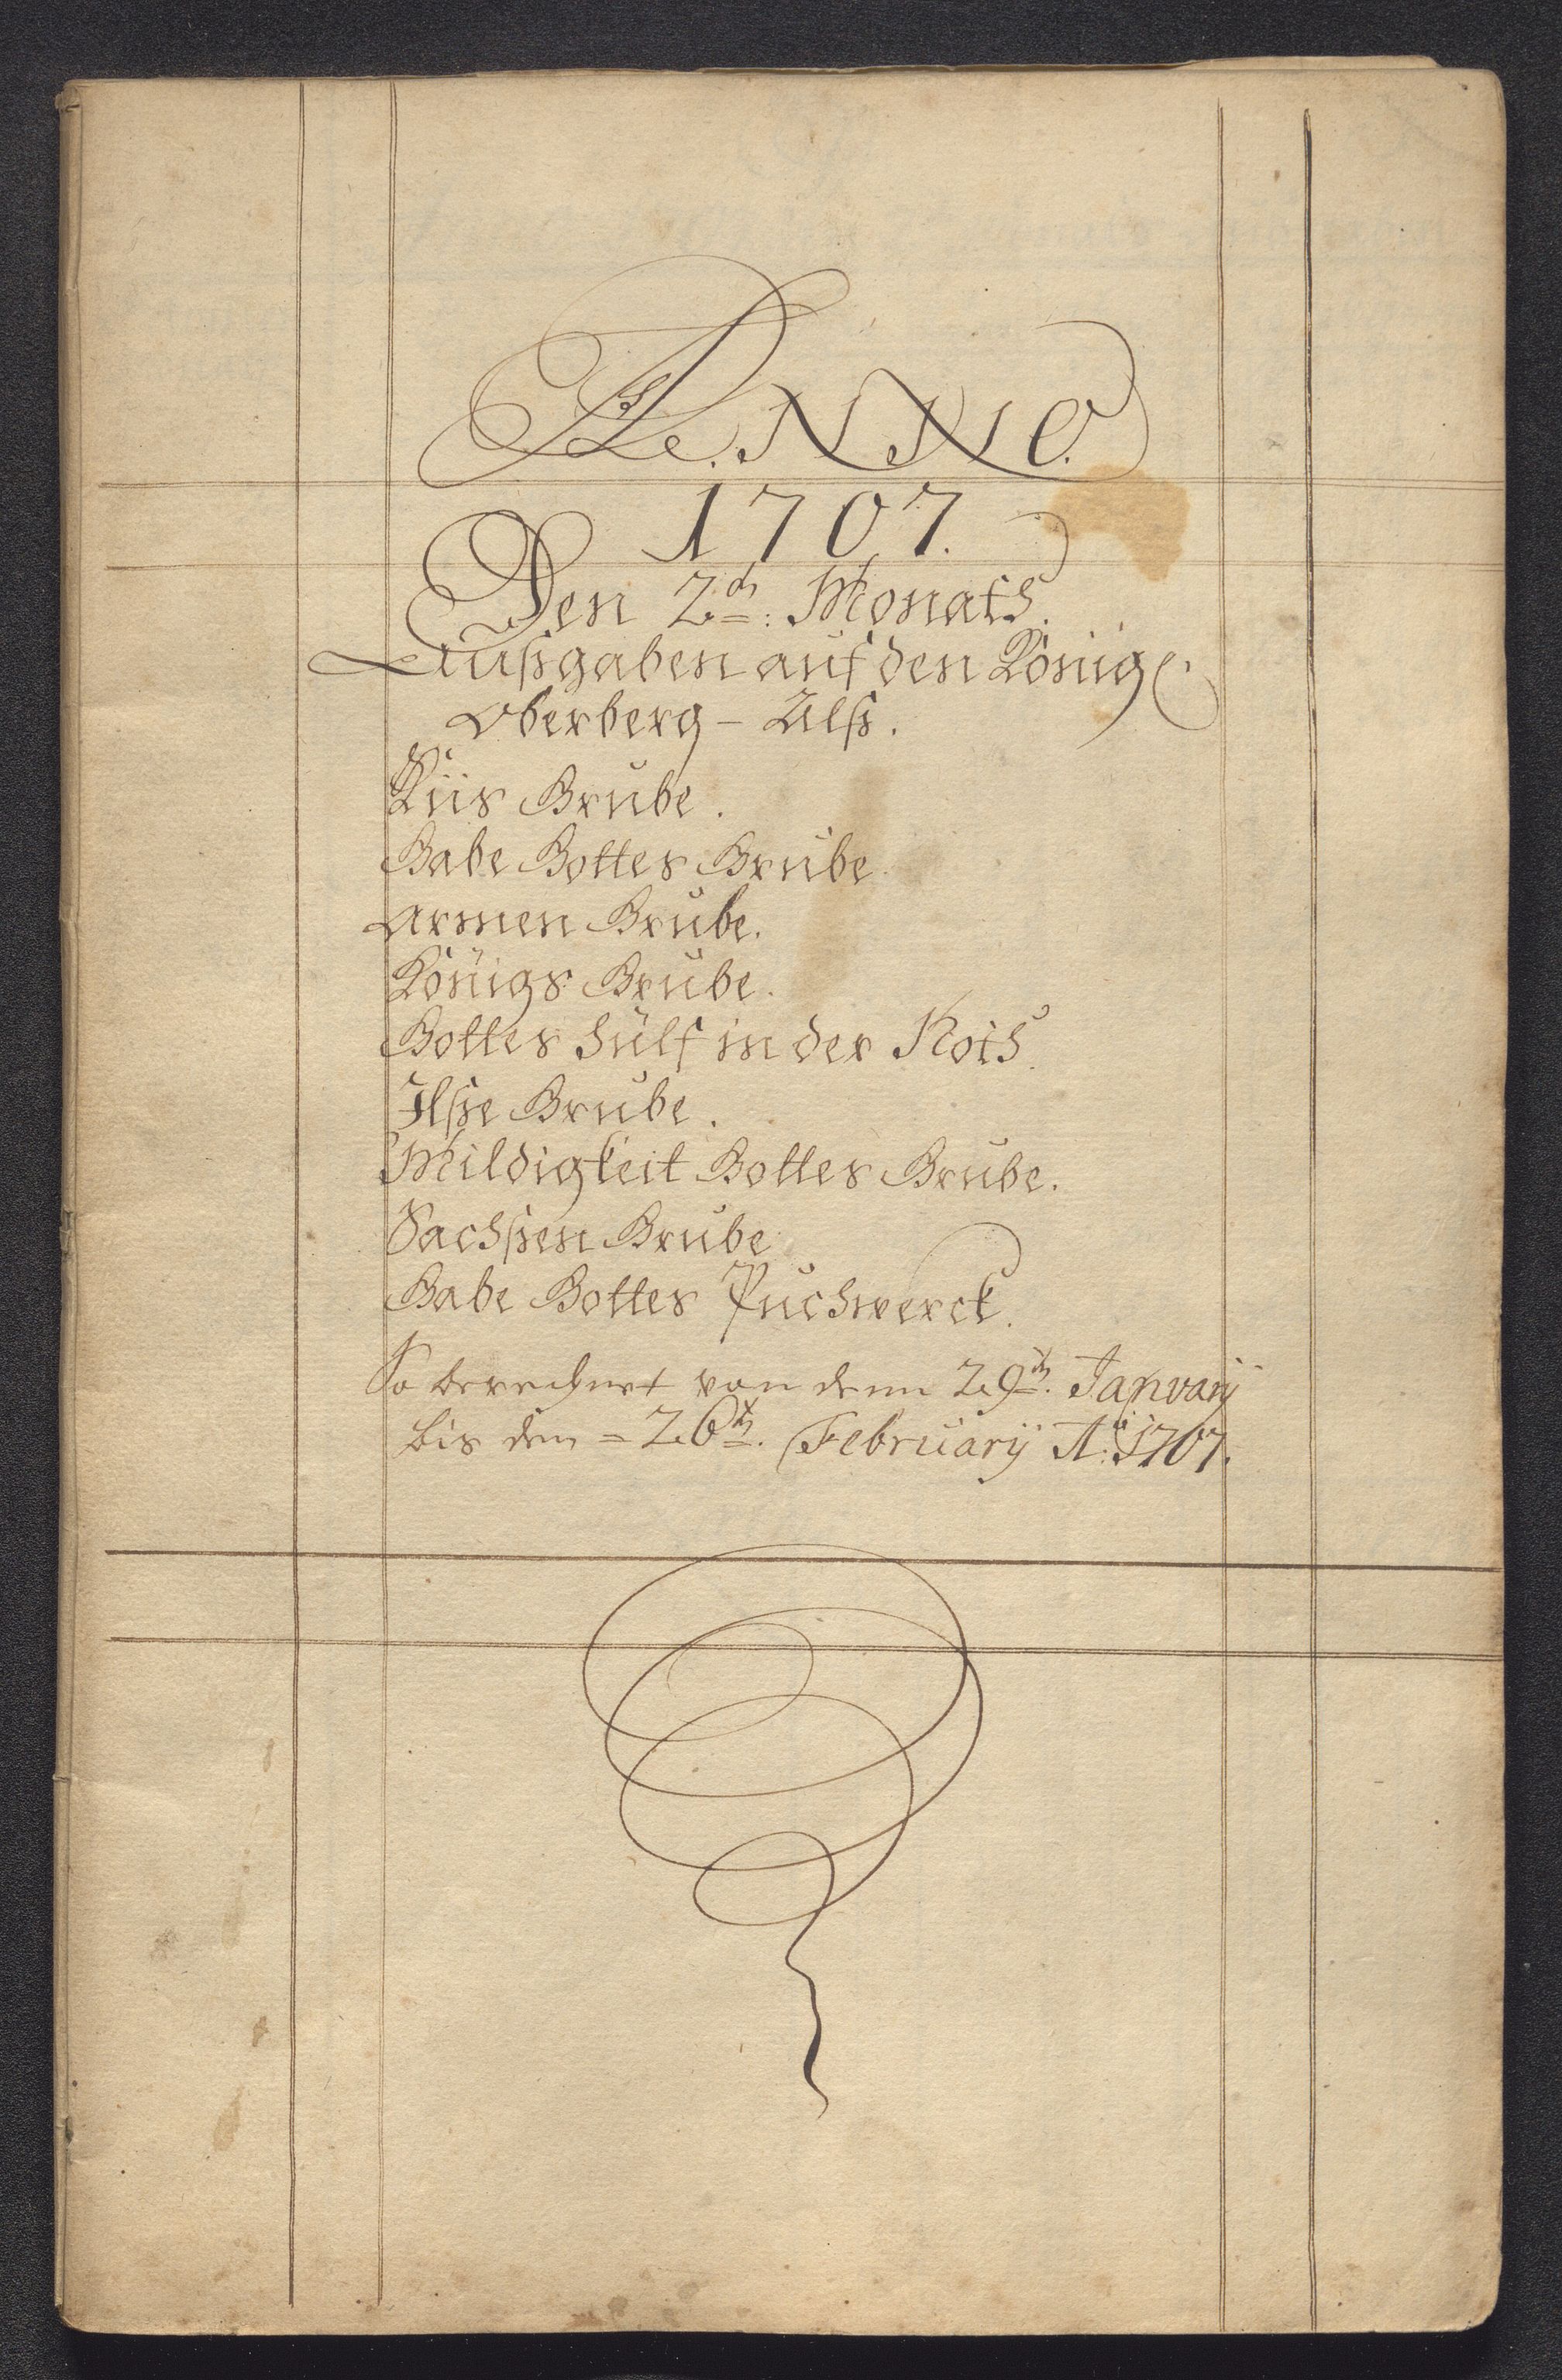 ANNO.
1707.
Den 2ᵗᵉⁿ: Monaths.
Außgaben auf den König:
Oberberg - Alß.
Küs Grube.
Gabe Gottes Grube.
Armen Grube.
Königs Grube.
Gottes hülf in der Noth.
Ilsse Grube.
Mildigkeit Gottes Grube.
Sachssen Grube
Gabe Gottes Puchwerck.
So berechnet von denn 29ᵗᵉⁿ. Janvarij
bis den = 26ᵗᵉⁿ. Februarij Aō: 1707.